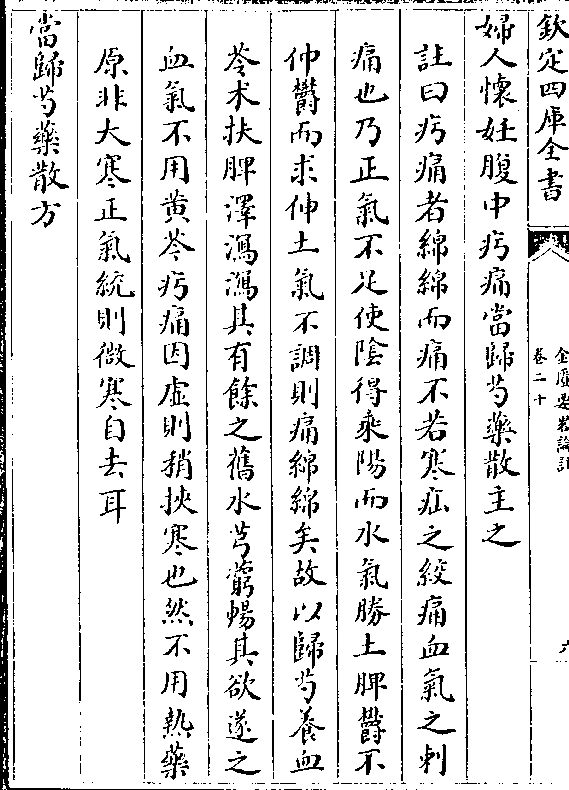 欽定四庫全書
金匱要略論註
卷二十
六
婦人懷妊腹中㽲痛當歸芍藥散主之
註曰㽲痛者綿綿而痛不若寒疝之絞痛血氣之刺
痛也乃正氣不足使陰得乘陽而水氣勝土脾鬱不
伸鬱而求伸土氣不調則痛綿綿矣故以歸芍養血
苓术扶脾澤瀉瀉其有餘之舊水芎藭暢其欲遂之
血氣不用黄芩㽲痛因虛則稍挾寒也然不用熱藥
原非大寒正氣統則微寒自去耳
當歸芍藥散方